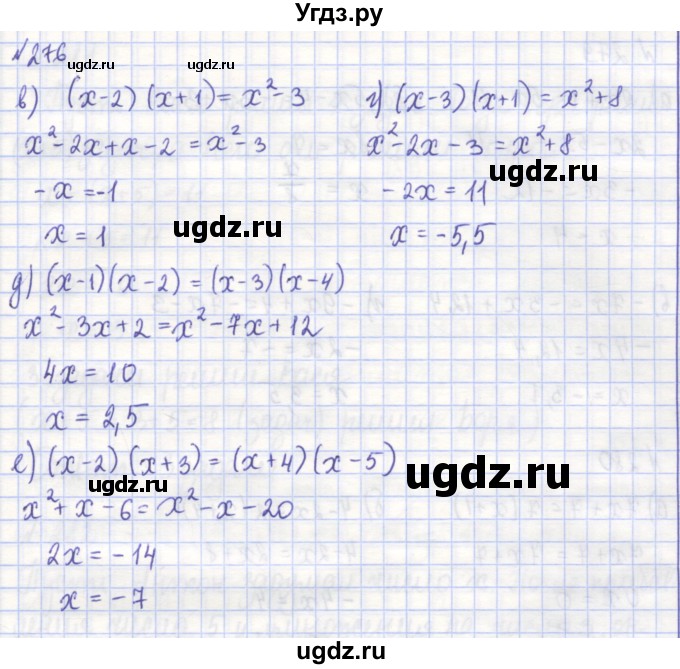 Угдз.ру
№276
ugdz.ru
в) (x-2)(x+1) = x²-3
x²-2x+x-2 = x²-3
-x = -1
x = 1
г) (x-3)(x+1) = x²+8
x²-2x-3 = x²+8
ugdz.ru
-2x = 11
x = -5,5
ugdz.ru
д) (x-1)(x-2) = (x-3)(x-4)
x²-3x+2 = x²-7x+12
ugdz.ru
4x = 10
x = 2,5
е) (x-2)(x+3) = (x+4)(x-5)
ugdz.ru
ugdz.ru
x²+x-6 = x²-x-20
2x = -14
x = -7
ugdz.ru